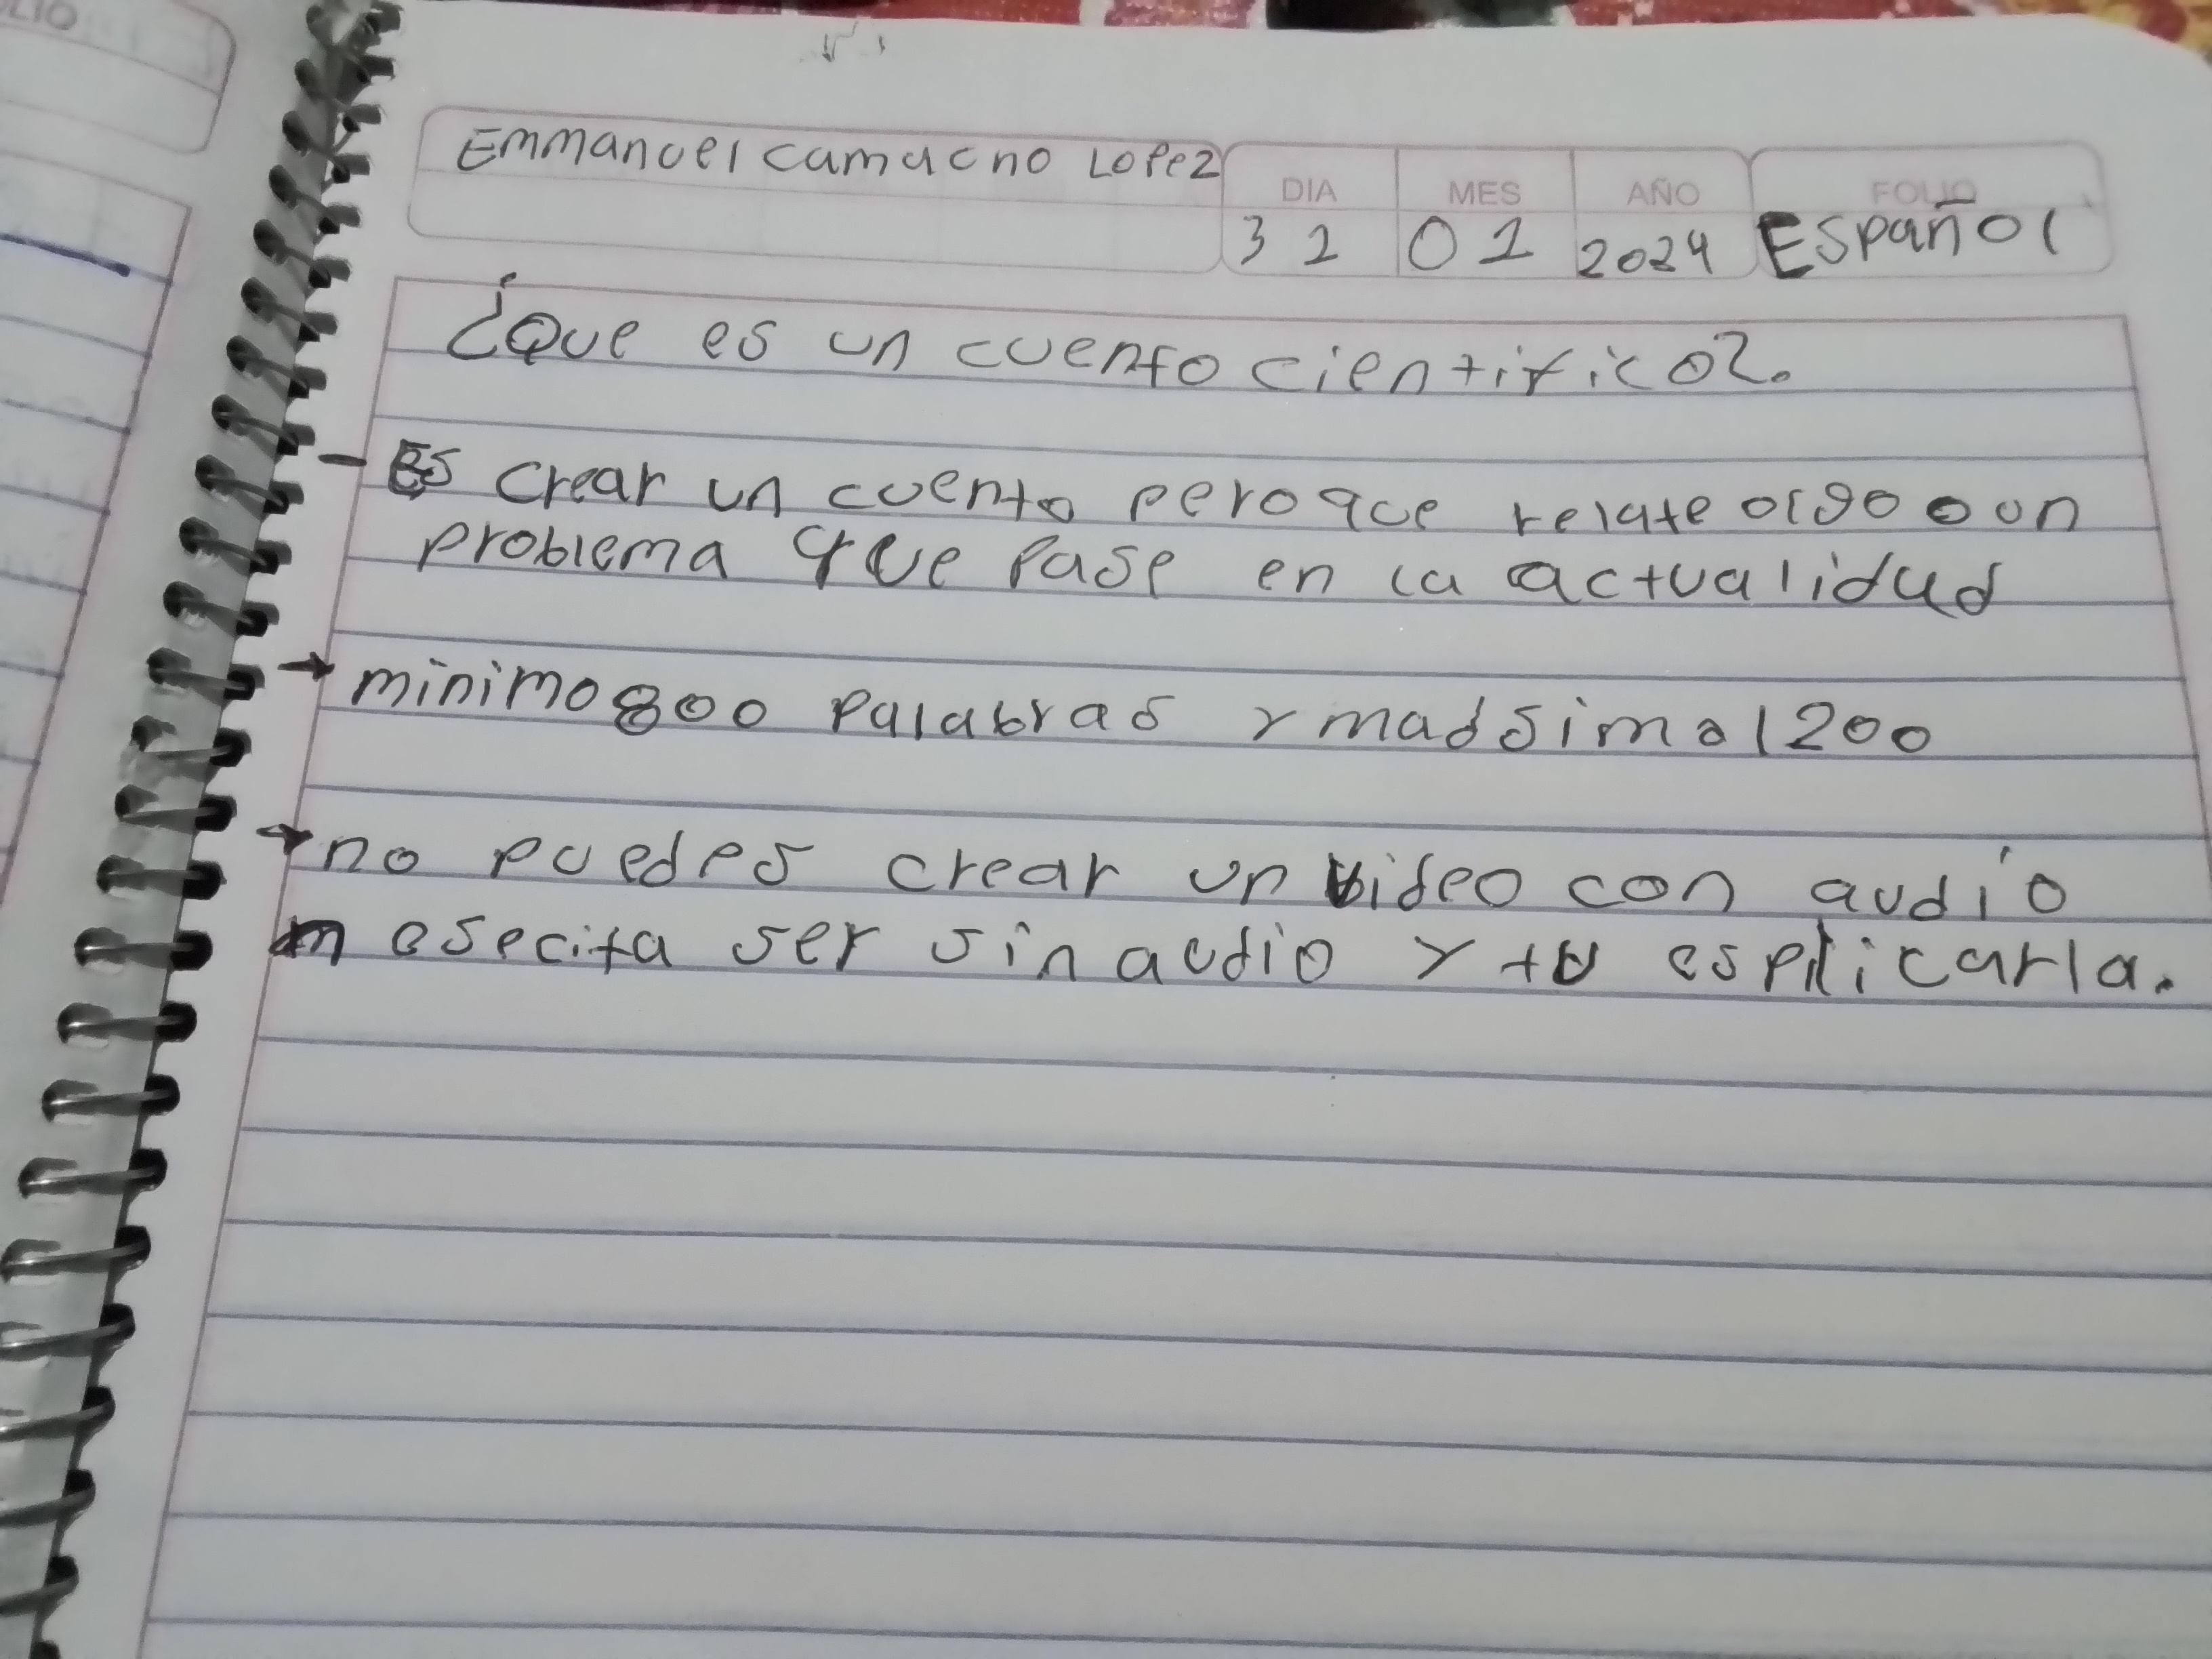 LIO
Emmanuel camacho Lopez
DIA MES AÑO FOLIO
31 01 2024 Español
¿Que es un cuento cientifico?.
- Es crear un cuento pero que relate algo o un
problema que pase en la actualidad
→ minimo 800 palabras y madsimo 1200
→ no puedes crear un video con audio
nesecita ser sin audio y tu esplicarla.